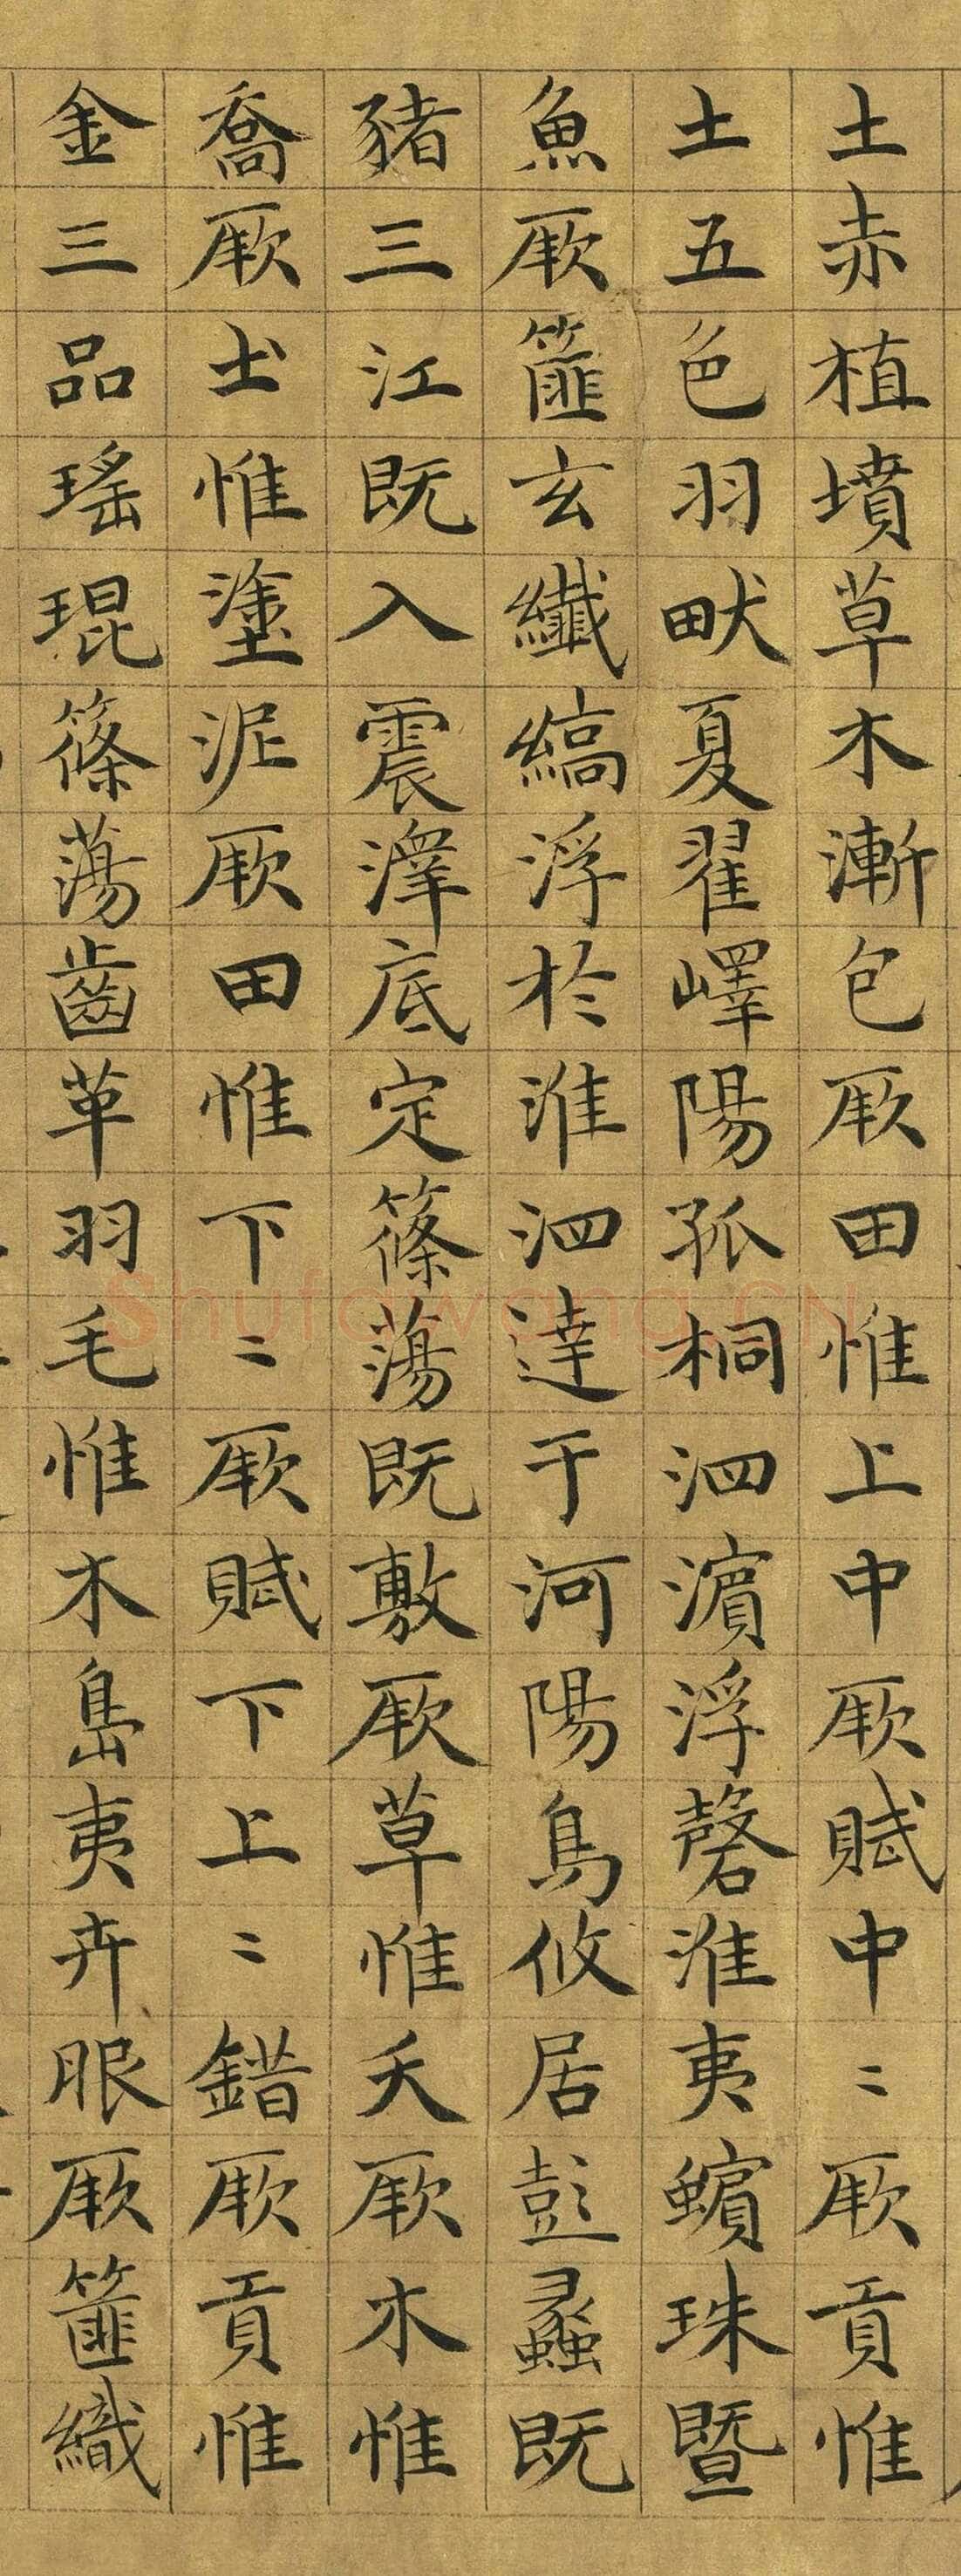 土赤植墳草木漸包厥田惟上中厥賦中〻厥貢惟
土五色羽畎夏翟嶧陽孤桐泗濵浮磬淮夷蠙珠暨
魚厥篚玄纖縞浮於淮泗達于河陽鳥攸居彭蠡既
豬三江既入震澤底定篠蕩既敷厥草惟夭厥木惟
喬厥土惟塗泥厥田惟下〻厥賦下上〻錯厥貢惟
金三品瑤琨篠蕩齒革羽毛惟木島夷卉服厥篚織
Shufawang.CN